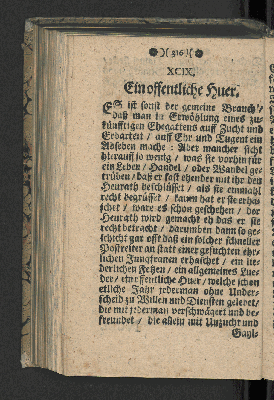 )( 316 )(
XCIX.
Ein offentliche Huer.
ES ist sonst der gemeine Brauch/
daß man in Erwöhlung eines zu-
künfftigen Ehegattens auff Zucht und
Erbarkeit / auff Ehr und Tugent ein
Absehen mache: Aber mancher siht
hierauff so wenig / was sie vorhin für
ein Leben / Handel / oder Wandel ge-
trüben / daß er fast ehender mit ihr den
Heurath beschlüsset / als sie einmahl
recht begrüsset / kaum hat er sie erha-
schet / ware es schon geschehen / der
Heurath wird gemacht eh das er es
recht betracht / darumben dann so ge-
schicht gar offt daß ein solcher schneller
Postreiter an statt einer gesuchten ehr-
lichen Jungfrauen erhaschet / ein lie-
derlichen Fetzen / ein allgemeines Lue-
der / ein offentliche Huer / welche schon
etliche Jahr jederman ohne Under-
scheid zu Willen und Diensten gelebet/
die mit jederman verschwägert und be-
freundet / die allein mit Unzucht und
Gayl-